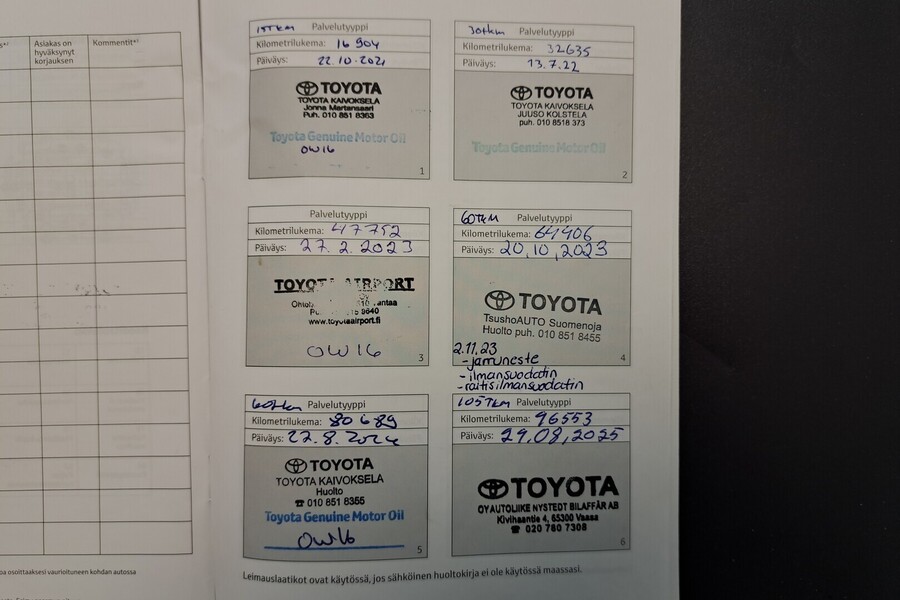 Asiakas on
hyväksynyt
korjauksen
Kommentit*⁾
15TKM Palvelutyyppi
Kilometrilukema: 16 904
Päiväys: 22.10.2021
TOYOTA
TOYOTA KAIVOKSELA
Jonna Martansaari
Puh. 010 851 8363
Toyota Genuine Motor Oil
OW16
1
30tkm Palvelutyyppi
Kilometrilukema: 32635
Päiväys: 13.7.22
TOYOTA
TOYOTA KAIVOKSELA
JUUSO KOLSTELA
puh. 010 8518 373
Toyota Genuine Motor Oil
2
Palvelutyyppi
Kilometrilukema: 47752
Päiväys: 27.2.2023
TOYOTA AIRPORT
www.toyotaairport.fi
OW16
3
60TKM Palvelutyyppi
Kilometrilukema: 64406
Päiväys: 20,10,2023
TOYOTA
TsushoAUTO Suomenoja
Huolto puh. 010 851 8455
2.11.23
-jarruneste
-ilmansuodatin
-raitisilmansuodatin
4
Palvelutyyppi
Kilometrilukema: 80689
Päiväys: 22.8.2024
TOYOTA
TOYOTA KAIVOKSELA
Huolto
☎ 010 851 8355
Toyota Genuine Motor Oil
OW16
5
105TKM Palvelutyyppi
Kilometrilukema: 96553
Päiväys: 29,08,2025
TOYOTA
OY AUTOLIIKE NYSTEDT BILAFFÄR AB
Kivihaantie 4, 65300 Vaasa
☎ 020 780 7308
6
oa osoittaaksesi vaurioituneen kohdan autossa
Leimauslaatikot ovat käytössä, jos sähköinen huoltokirja ei ole käytössä maassasi.